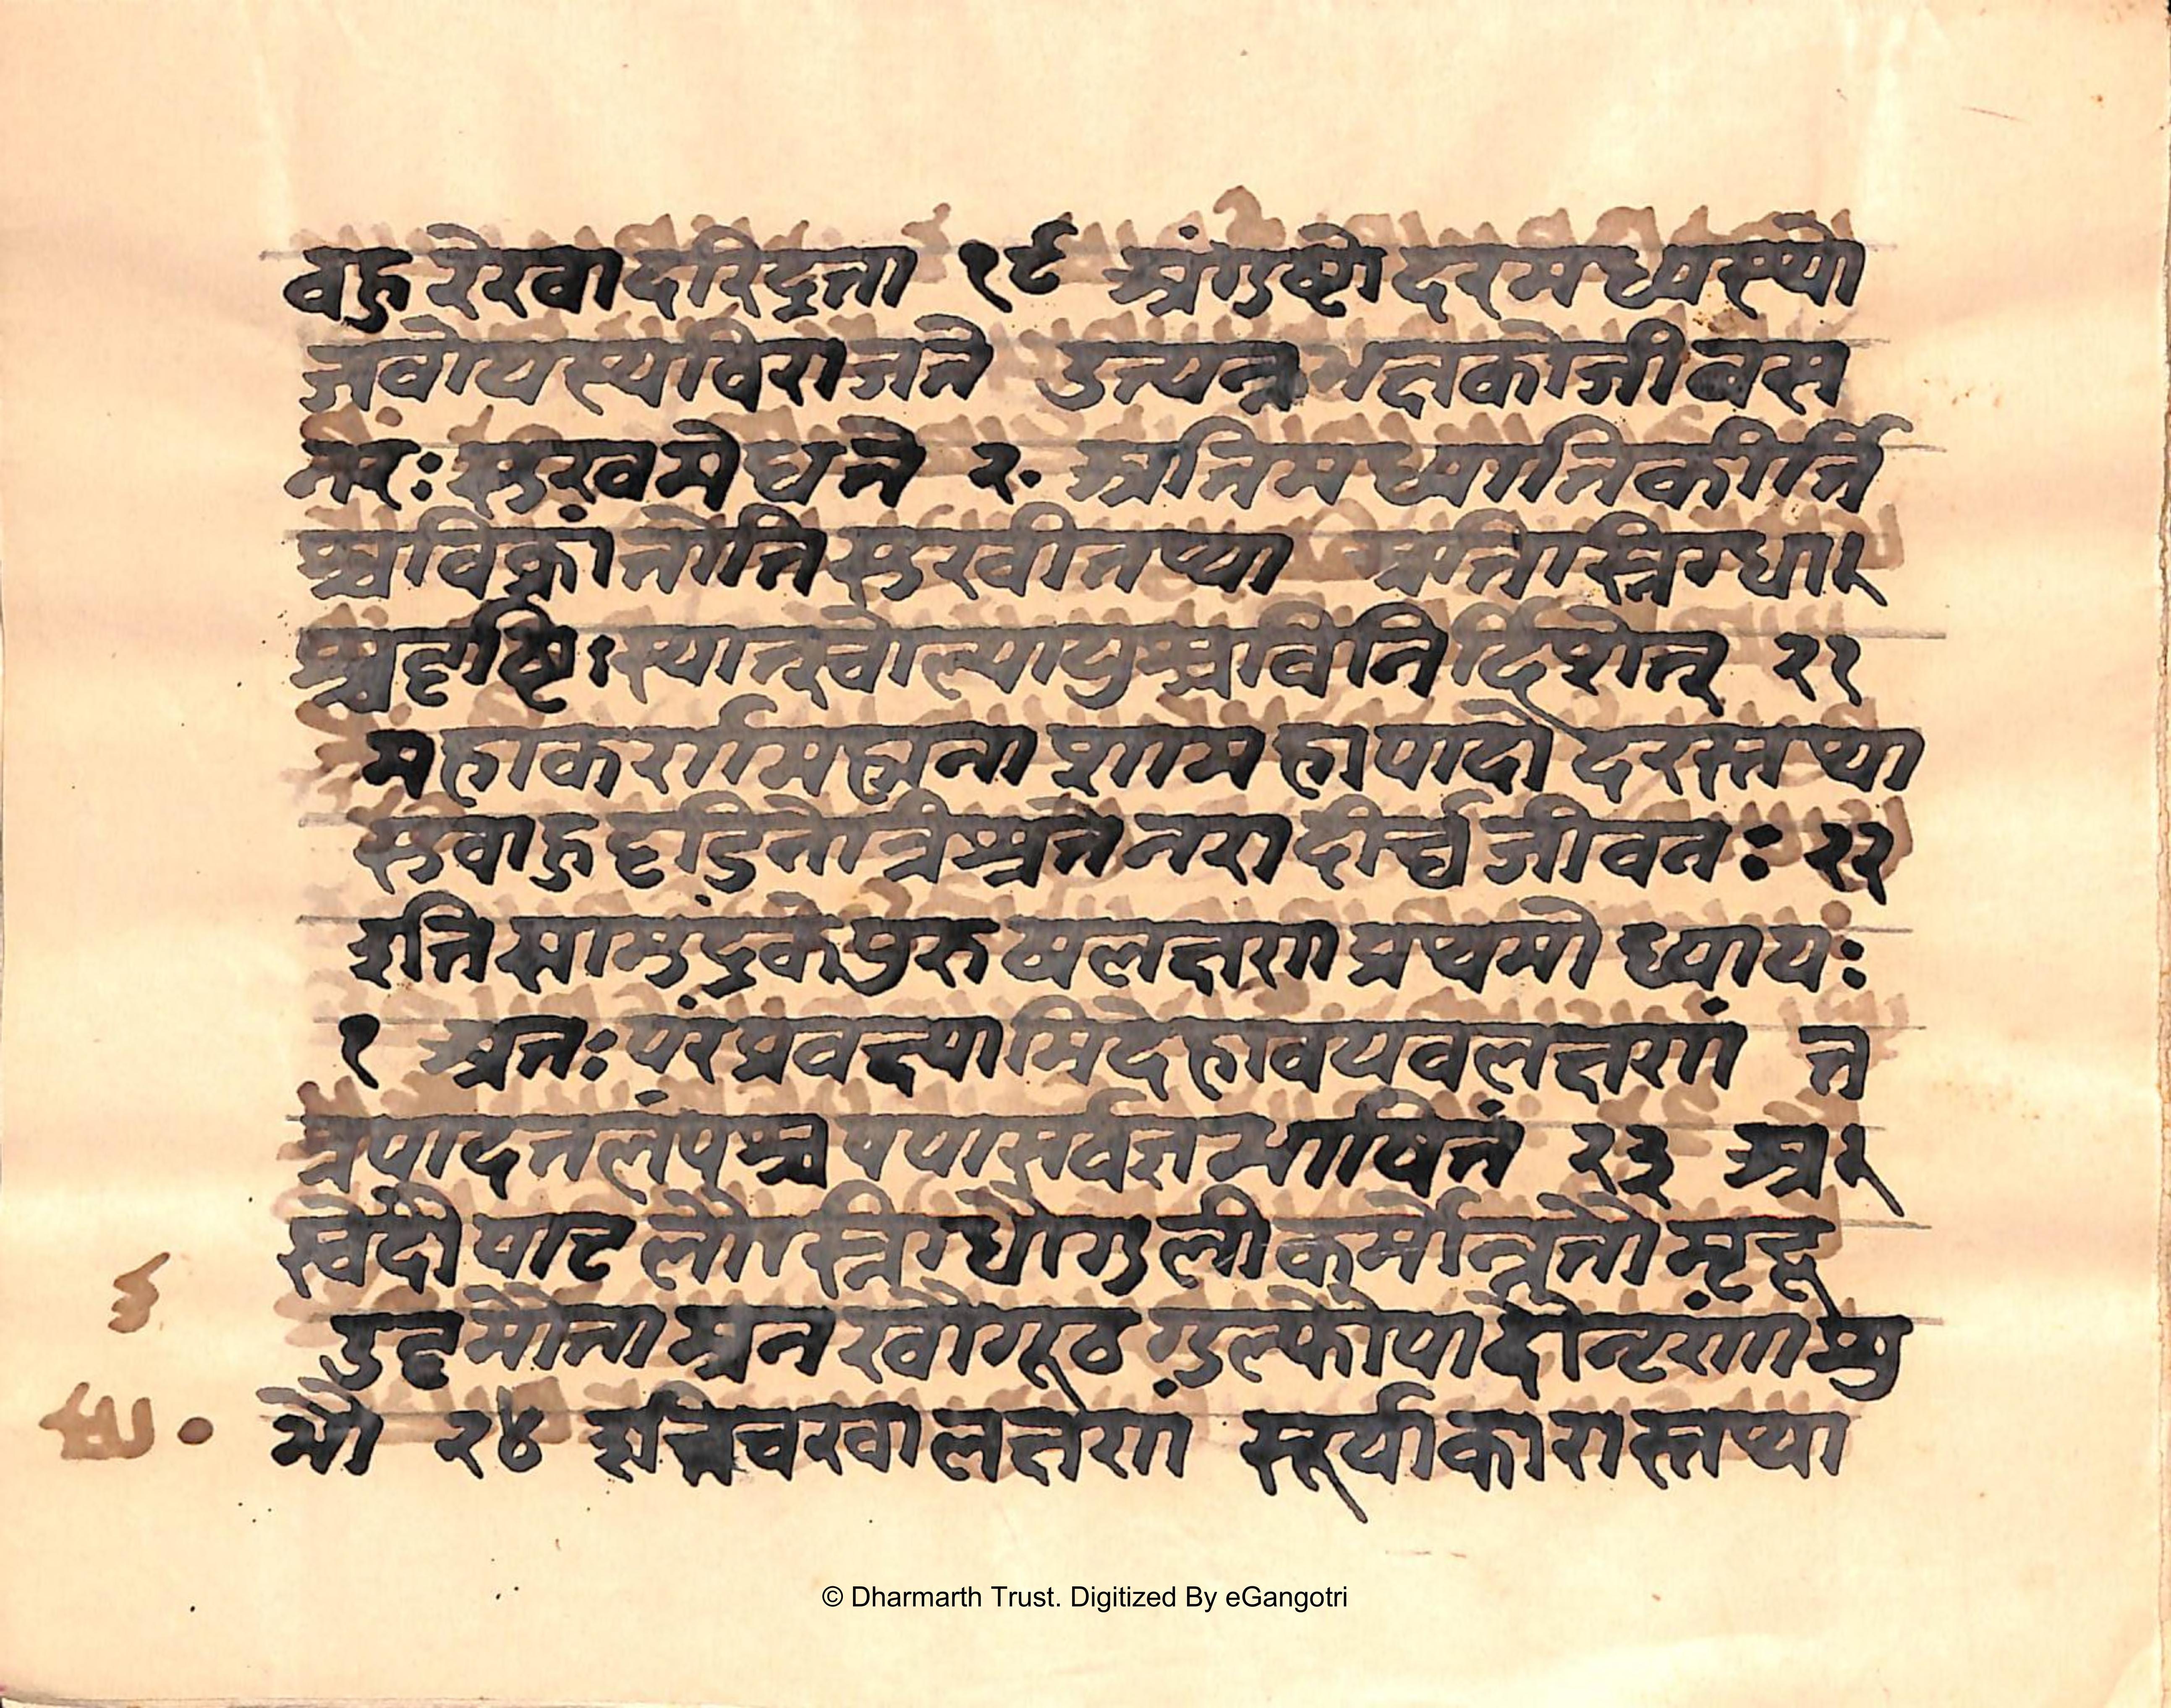 वहुरेखादरिद्रता १९ अंगुष्टोदरमध्यस्थो
जवोयस्यविराजते उत्पन्नभक्षकोजीवस
नरः सुखमेधते २० अतिमेधातिकीर्ति
श्चविक्रांतोतिसुखीतथा अतिस्निग्धा
श्चदृष्टिः स्यात्स्वोल्पायुश्चविनिर्दिशेत् २१
महाकर्णामहानाशामहापादोदरस्तथा
सुवाहुदृडिनोत्रीश्चतेनरादीर्घजीवनः २२
इतिसामुंद्रकेपुरुषलक्षणप्रथमोध्यायः
१ अतः परंप्रवक्ष्यामिदेहावयवलक्षणं त
त्रपादतलंपश्चयथासर्वज्ञभाषितं २३ अ
स्वेदौपाटलौस्निग्धौगुलीकूर्मोन्नतौमृदू
दुदृमौताम्रनखौगूठगुल्फौपादौनृणांशु
भौ २४ इतिचरवालक्षणं सूर्याकारास्तथा
© Dharmarth Trust. Digitized By eGangotri